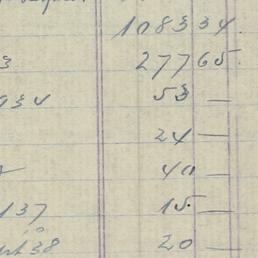 108334.
3 27765.
934 53 —
24 —
40 —
137 15 —
38 20 —